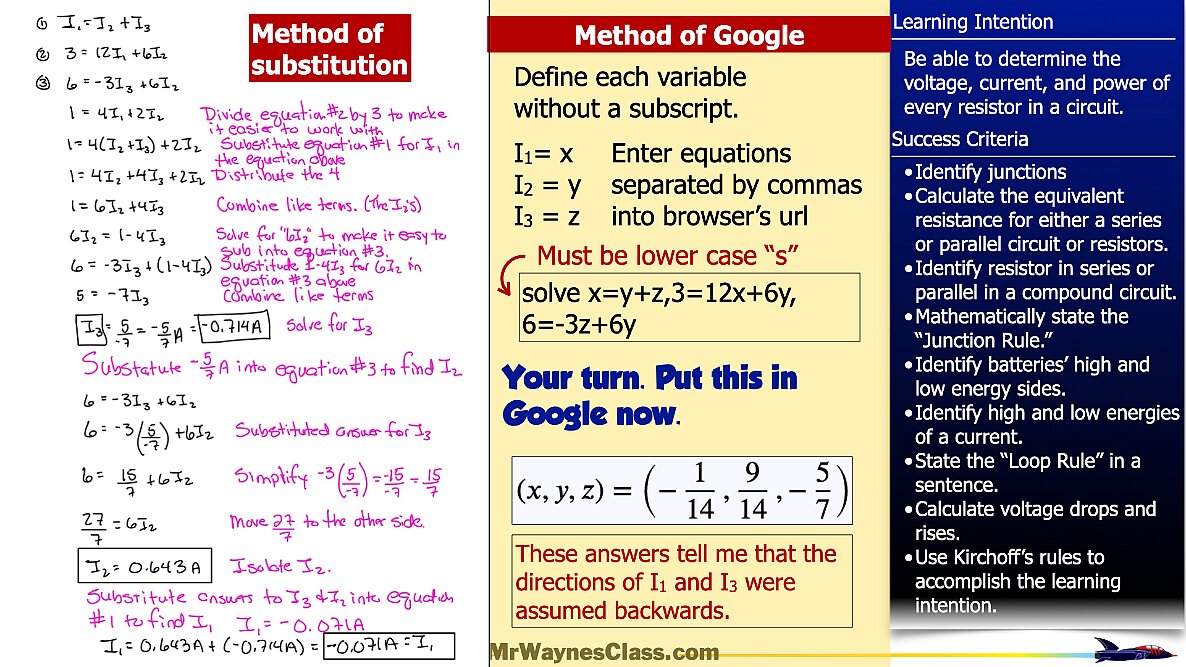 ① I₁ = I₂ + I₃
② 3 = 12I₁ + 6I₂
③ 6 = -3I₃ + 6I₂
Method of
substitution
1 = 4I₁ + 2I₂ Divide equation #2 by 3 to make
it easier to work with
1 = 4(I₂ + I₃) + 2I₂ Substitute equation #1 for I₁ in
the equation above
1 = 4I₂ + 4I₃ + 2I₂ Distribute the 4
1 = 6I₂ + 4I₃ Combine like terms. (The I₂'s)
6I₂ = 1 - 4I₃ Solve for "6I₂" to make it easy to
sub into equation #3.
6 = -3I₃ + (1 - 4I₃) Substitute 1-4I₃ for 6I₂ in
equation #3 above
5 = -7I₃ Combine like terms
I₃ = 5/-7 = -5/7 A = -0.714A Solve for I₃
Substatute -5/7 A into equation #3 to find I₂
6 = -3I₃ + 6I₂
6 = -3(5/-7) + 6I₂ Substituted answer for I₃
6 = 15/7 + 6I₂ Simplify -3(5/-7) = -15/-7 = 15/7
27/7 = 6I₂ Move 27/7 to the other side.
I₂ = 0.643A Isolate I₂.
Substitute answers to I₃ & I₂ into equation
#1 to find I₁ I₁ = -0.071A
I₁ = 0.643A + (-0.714A) = -0.071A = I₁
Method of Google
Define each variable
without a subscript.
I₁= x Enter equations
I₂ = y separated by commas
I₃ = z into browser's url
Must be lower case "s"
solve x=y+z,3=12x+6y,
6=-3z+6y
Your turn. Put this in
Google now.
(x, y, z) = (-1/14, 9/14, -5/7)
These answers tell me that the
directions of I₁ and I₃ were
assumed backwards.
MrWaynesClass.com
Learning Intention
Be able to determine the
voltage, current, and power of
every resistor in a circuit.
Success Criteria
•Identify junctions
•Calculate the equivalent
resistance for either a series
or parallel circuit or resistors.
•Identify resistor in series or
parallel in a compound circuit.
•Mathematically state the
"Junction Rule."
•Identify batteries' high and
low energy sides.
•Identify high and low energies
of a current.
•State the "Loop Rule" in a
sentence.
•Calculate voltage drops and
rises.
•Use Kirchoff's rules to
accomplish the learning
intention.